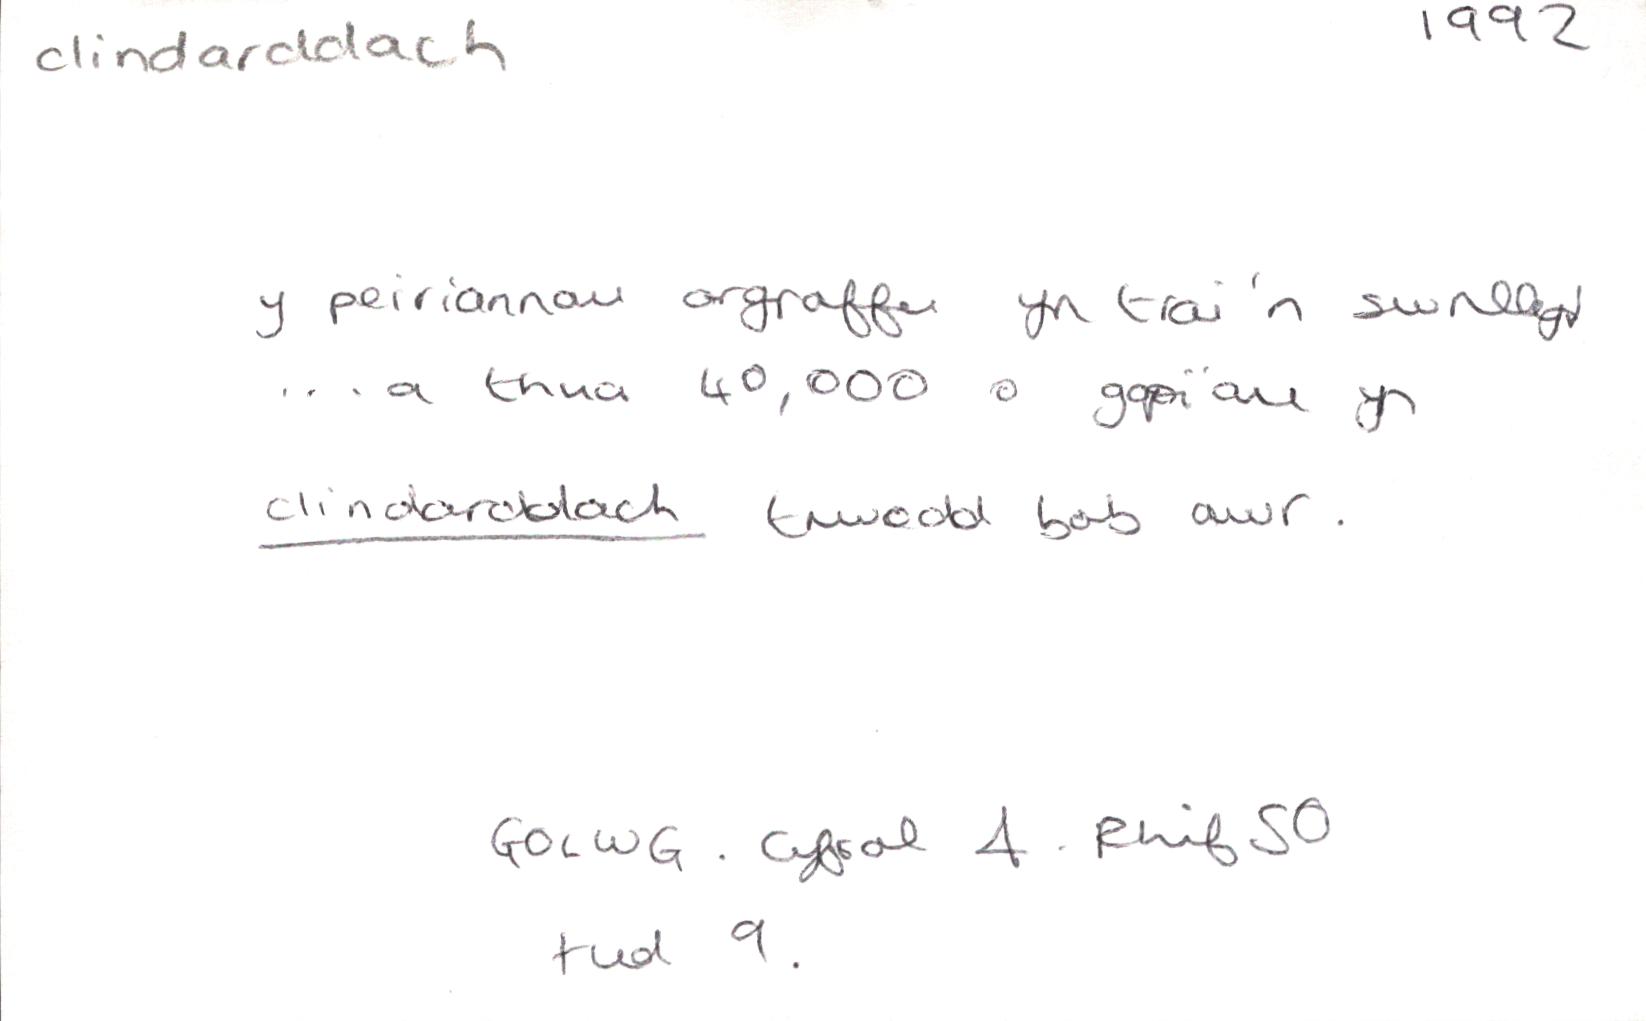 clindarddach 1992
y peiriannau argraffu yn troi'n swnllyd
.... a thua 40,000 o gopïau yn
clindarddach trwodd bob awr.
GOLWG. Cyfrol 4. Rhif 50
tud 9.